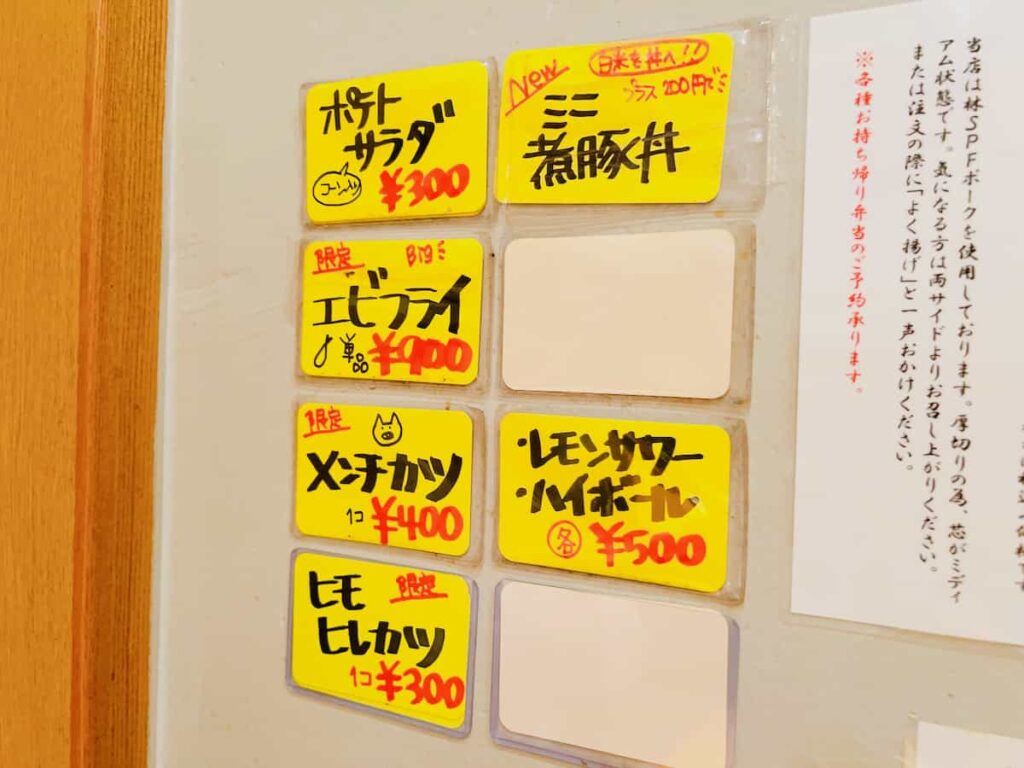 ポテト
サラダ
コーン入り
¥300
New
白米を丼へ!!
プラス200円で
ミニ
煮豚丼
限定
BIG
エビフライ
単品
¥900
限定
メンチカツ
1コ ¥400
・レモンサワー
・ハイボール
各 ¥500
ヒモ 限定
ヒレカツ
1コ ¥300
当店は林SPFポークを使用しております。厚切りの為、芯がミディ
アム状態です。気になる方は両サイドよりお召し上がりください。
または注文の際に「よく揚げ」と一声おかけください。
※各種お持ち帰り弁当のご予約承ります。